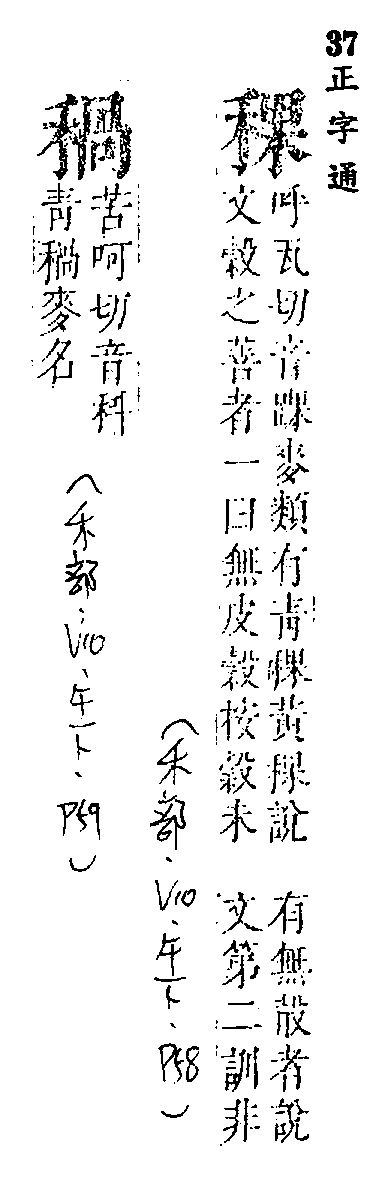 37正字通
稞
呼瓦切音踝麥類有青稞黃稞說
文穀之善者一曰無皮穀按穀未
有無殼者說
文第二訓非
（禾部、V10、午下、P58）
䅥
苦呵切音科
青䅥麥名
（禾部、V10、午下、P59）